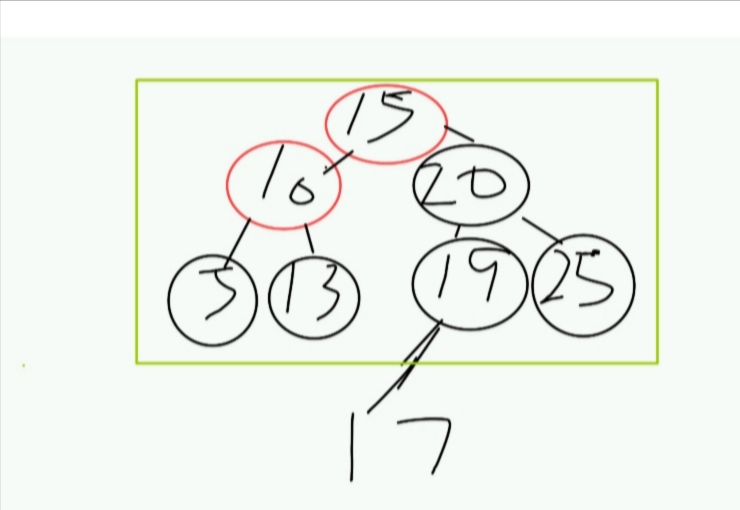 15
10 20
5 13 19 25
17